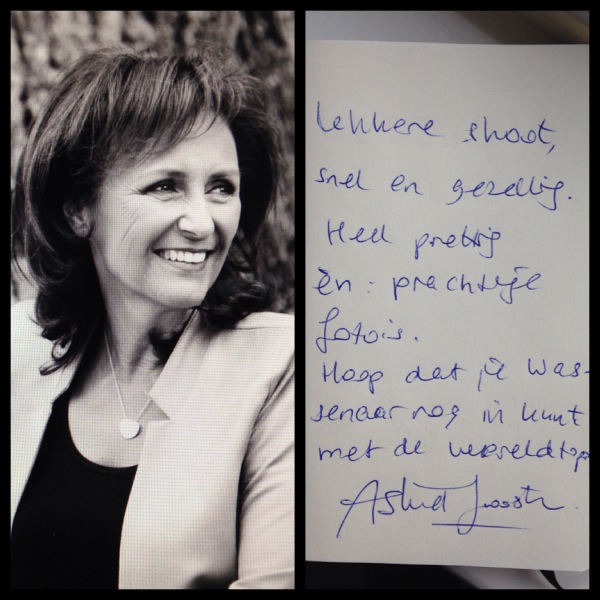 Lekkere shoot,
snel en gezellig.
Heel prettig
èn: prachtige
foto's.
Hoop dat je Was-
senaar nog in kunt
met de wereldtop
Astrid Joosten